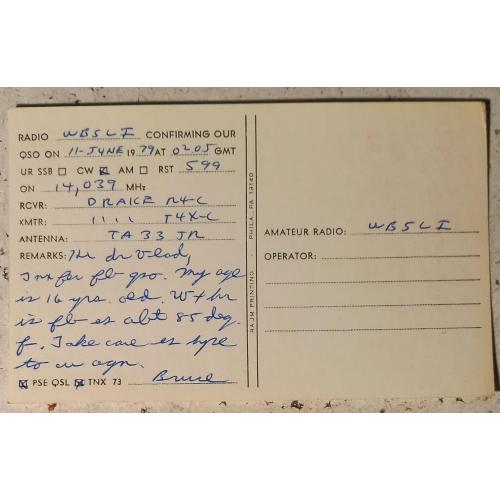 RADIO WB5LI CONFIRMING OUR
QSO ON 11-JUNE 1979 AT 0205 GMT
UR SSB ☐ CW ☒ AM ☐ RST 599
ON 14,039 MHz
RCVR: DRAKE R4-C
XMTR: 11 11 T4X-C
ANTENNA: TA 33 JR
REMARKS: Hi dr Vlad,
Tnx fer fb qso. My age
is 16 yrs. old. Wx hr
is fb es abt 85 deg.
f. Take care es hpe
to cu agn.
☒ PSE QSL ☒ TNX 73 Bruce
RAJM PRINTING · PHILA., PA 19140
AMATEUR RADIO: WB5LI
OPERATOR: